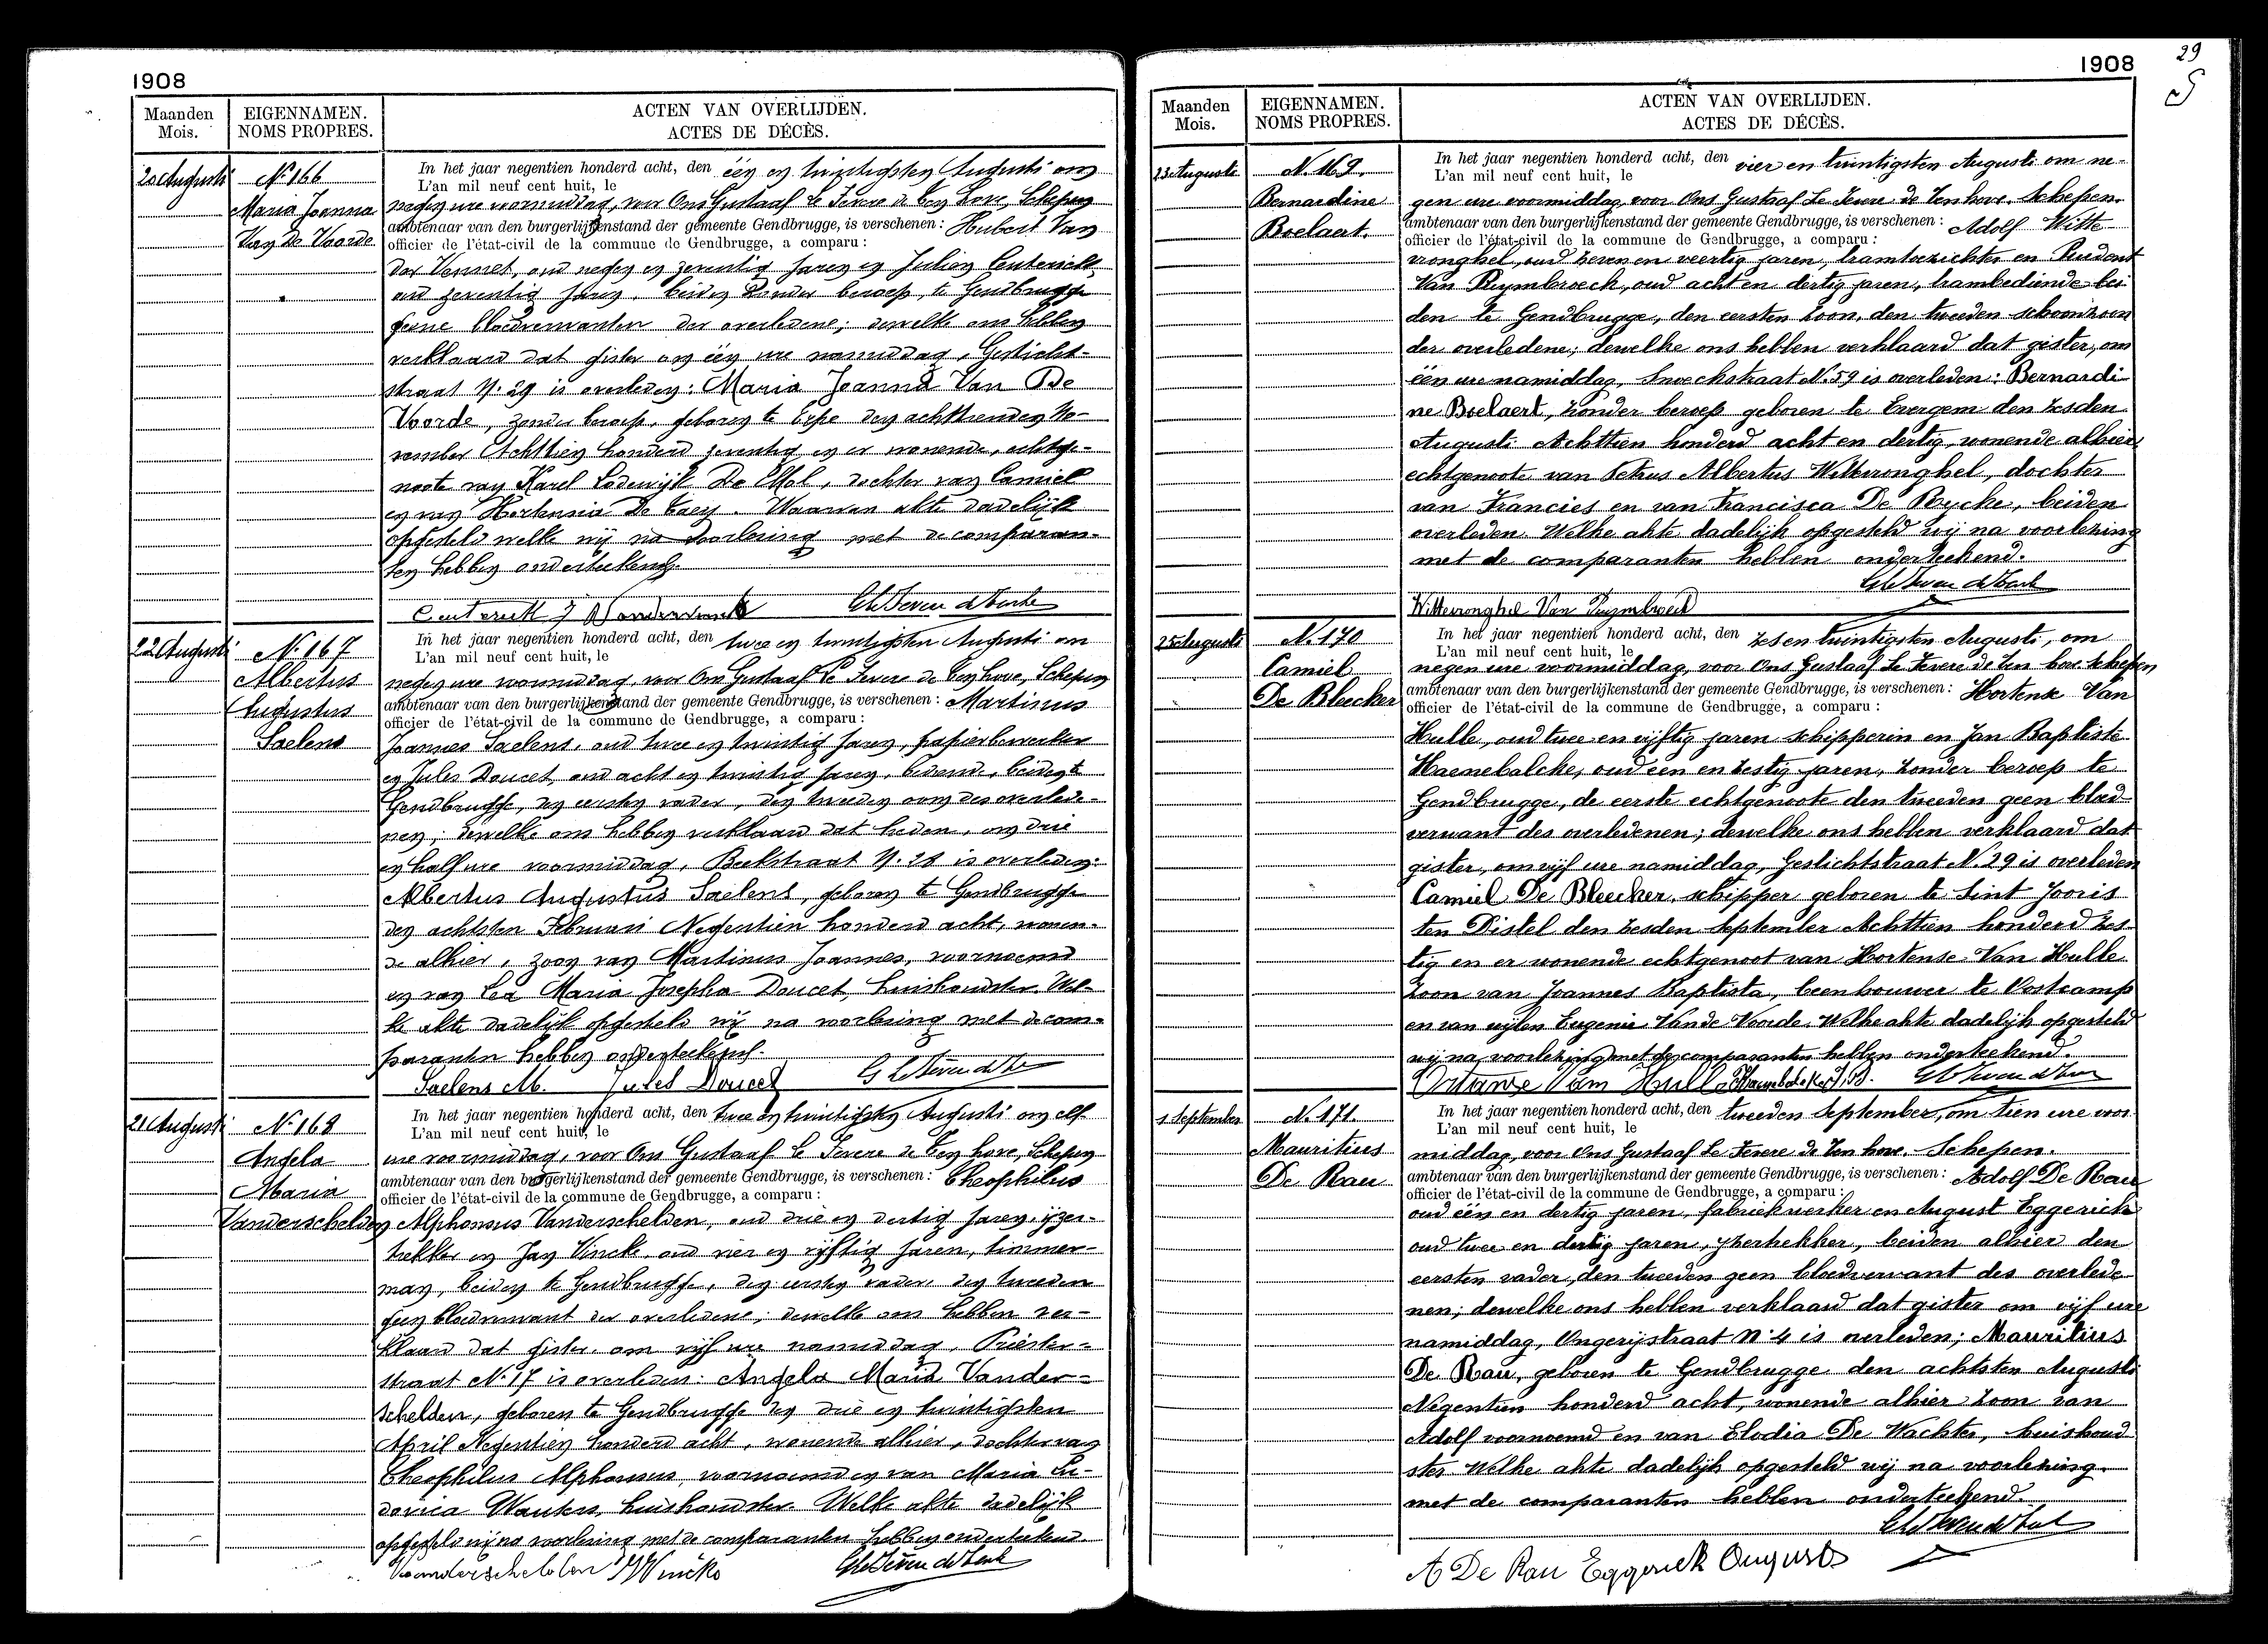 1908
Maanden
Mois.
EIGENNAMEN.
NOMS PROPRES.
ACTEN VAN OVERLIJDEN.
ACTES DE DÉCÈS.
20 Augusti
No 166
Maria Joanna
Van De Voorde
In het jaar negentien honderd acht, den één en twintigsten Augusti om
L'an mil neuf cent huit, le
negen ure voormiddag, voor Ons Gustaaf Le Fevere de Ten Hove, Schepen
ambtenaar van den burgerlijkenstand der gemeente Gendbrugge, is verschenen: Hubert Van
officier de l'état-civil de la commune de Gendbrugge, a comparu:
der Vennet, oud negen en zeventig jaren en Julien Centerick
oud zeventig jaren, beiden zonder beroep, te Gendbrugge
geene bloedverwanten der overledene; dewelke ons hebben
verklaard dat gister om één ure namiddag, Gesticht-
straat N. 29 is overleden: Maria Joanna Van De
Voorde, zonder beroep, geboren te Eepe den achttienden No-
vember Achttien honderd zeventig en er wonende, echtge-
noote van Karel Lodewijk De Mol, dochter van Camiel
en van Hortensia De Caey. Waarvan akte dadelijk
opgesteld welke wij na voorlezing met de comparan-
ten hebben onderteekend.
22 Augusti
No 167
Albertus
Augustus
Saelens
In het jaar negentien honderd acht, den twee en twintigsten Augusti om
L'an mil neuf cent huit, le
negen ure voormiddag, voor Ons Gustaaf Le Fevere de Ten hove, Schepen
ambtenaar van den burgerlijkenstand der gemeente Gendbrugge, is verschenen: Martinus
officier de l'état-civil de la commune de Gendbrugge, a comparu:
Joannes Saelens, oud twee en twintig jaren, papierbewerker
en Jules Doucet, oud acht en twintig jaren, bediende, beiden te
Gendbrugge, den eersten vader, den tweeden oom des overlede-
nen; dewelke ons hebben verklaard dat heden, om drie
en half ure voormiddag, Beekstraat N. 28 is overleden:
Albertus Augustus Saelens, geboren te Gendbrugge
den achtsten Februari Negentien honderd acht, wonen-
de alhier, zoon van Martinus Joannes, voornoemd
en van Lea Maria Josepha Doucet, huishoudster. Wel-
ke akte dadelijk opgesteld wij na voorlezing met de com-
paranten hebben onderteekend.
Saelens M. Jules Doucet
21 Augusti
No 168
Angela
Maria
Vanderschelden
In het jaar negentien honderd acht, den twee en twintigsten Augusti om elf
L'an mil neuf cent huit, le
ure voormiddag, voor Ons Gustaaf Le Fevere de Ten hove, Schepen
ambtenaar van den burgerlijkenstand der gemeente Gendbrugge, is verschenen: Theophilus
officier de l'état-civil de la commune de Gendbrugge, a comparu:
Alphonsus Vanderschelden, oud drie en dertig jaren, ijzer-
trekker en Jan Vincke, oud vier en vijftig jaren, timmer-
man, beiden te Gendbrugge, den eersten vader, den tweeden
geen bloedverwant der overledene; dewelke ons hebben ver-
klaard dat gister, om vijf ure namiddag, Priester-
straat No 17 is overleden: Angela Maria Vander-
schelden, geboren te Gendbrugge den drie en twintigsten
April Negentien honderd acht, wonende alhier, dochter van
Theophilus Alphonsus, voornoemd en van Maria Lu-
dovica Wauters, huishoudster. Welke akte dadelijk
opgesteld wij na voorlezing met de comparanten hebben onderteekend.
Vanderschelden J Vincke
29
1908
Maanden
Mois.
EIGENNAMEN.
NOMS PROPRES.
ACTEN VAN OVERLIJDEN.
ACTES DE DÉCÈS.
23 Augusti
N. 169.
Bernardine
Boelaert.
In het jaar negentien honderd acht, den vier en twintigsten Augusti om ne-
L'an mil neuf cent huit, le
gen ure voormiddag voor Ons Gustaaf Le Fevere de Ten hove. Schepen.
ambtenaar van den burgerlijkenstand der gemeente Gendbrugge, is verschenen: Adolf Witte
officier de l'état-civil de la commune de Gendbrugge, a comparu:
vronghel, oud zeven en veertig jaren, tramtoezichter en Prudent
Van Puymbroeck, oud acht en dertig jaren, trambediende bei
den te Gendbrugge, den eersten zoon, den tweeden schoonzoon
der overledene; dewelke ons hebben verklaard dat gister, om
één ure namiddag, Snoeckstraat N. 59 is overleden: Bernardi
ne Boelaert, zonder beroep geboren te Evergem den zesden
Augusti Achttien honderd acht en dertig, wonende alhier
echtgenoote van Petrus Albertus Wittevronghel, dochter
van Francies en van Francisca De Rycke, beiden
overleden. Welke akte dadelijk opgesteld wij na voorlezing
met de comparanten hebben onderteekend.
Wittevronghel Van Puymbroeck
25 Augusti
N. 170
Camiel
De Bleecker
In het jaar negentien honderd acht, den zes en twintigsten Augusti, om
L'an mil neuf cent huit, le
negen ure voormiddag, voor Ons Gustaaf Le Fevere de Ten hove. Schepen
ambtenaar van den burgerlijkenstand der gemeente Gendbrugge, is verschenen: Hortense Van
officier de l'état-civil de la commune de Gendbrugge, a comparu:
Hulle, oud twee en vijftig jaren schipperin en Jan Baptiste
Haenebalcke, oud één en zestig jaren, zonder beroep te
Gendbrugge, de eerste echtgenoote den tweeden geen bloed
verwant des overledenen; dewelke ons hebben verklaard dat
gister, om vijf ure namiddag, Gestichtstraat N. 29 is overleden
Camiel De Bleecker, schipper geboren te Sint Jooris
ten Distel den zesden September Achttien honderd zes-
tig en er wonende echtgenoot van Hortense Van Hulle
zoon van Joannes Baptista, beenhouwer te Oostcamp
en van wijlen Eugenie Vande Voorde. Welke akte dadelijk opgesteld
wij na voorlezing met de comparanten hebben onderteekend.
1 September
N. 171.
Mauritius
De Rau
In het jaar negentien honderd acht, den tweeden September, om tien ure voor
L'an mil neuf cent huit, le
middag, voor Ons Gustaaf Le Fevere de Ten hove. Schepen.
ambtenaar van den burgerlijkenstand der gemeente Gendbrugge, is verschenen: Adolf De Rau
officier de l'état-civil de la commune de Gendbrugge, a comparu:
oud één en dertig jaren, fabriekwerker en August Eggerick
oud twee en dertig jaren, ijzertrekker, beiden alhier den
eersten vader, den tweeden geen bloedverwant des overlede
nen; dewelke ons hebben verklaard dat gister om vijf ure
namiddag, Ongerijstraat No 4 is overleden; Mauritius
De Rau, geboren te Gendbrugge den achtsten Augusti
Negentien honderd acht, wonende alhier zoon van
Adolf voornoemd en van Elodia De Wachter, huishoud
ster Welke akte dadelijk opgesteld wij na voorlezing
met de comparanten hebben onderteekend.
A De Rau Eggerick August